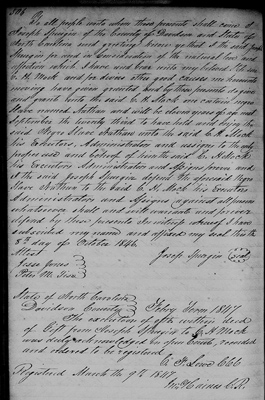 To all people unto whom these presents shall come I
Joseph Spurgin of the County of Davidson and State of
North Carolina send greeting know ye that I the said Joseph
Spurgin for and in Consideration of the natural love and
affection which I have and bear unto my
C. H. Mock and for divers other good causes me hereunto
moving have given granted and by these presents do give
and grant unto the said C. H. Mock one certain negro
boy named Nathan
September the twenty third to have hold and enjoy the
said Negro Slave Nathan unto the said C. H. Mock
his Executors, Administrators and assigns to the only
proper use and behoof of him the said C. H. Mock
his Executors Administrators and assigns forever and
I the said Joseph Spurgin the aforesaid Negro
Slave Nathan to the said C. H. Mock his Executors
Administrators and Assigns against all persons
whatsoever shall and will warrant and forever
defend by these presents In witness whereof I have
subscribed my name and affixed my seal this the
8th day of October 1846.
Attest Joseph Spurgin (Seal)
Jones
Peter W.
State of North Carolina
Davidson County Feby Term 1847
The execution of the within deed
of Gift from Joseph Spurgin to C. H. Mock
was duly acknowledged in open Court, recorded
and ordered to be registered
C. F. Lowe CCC
Registered March the 9th 1847
Haines P.R.